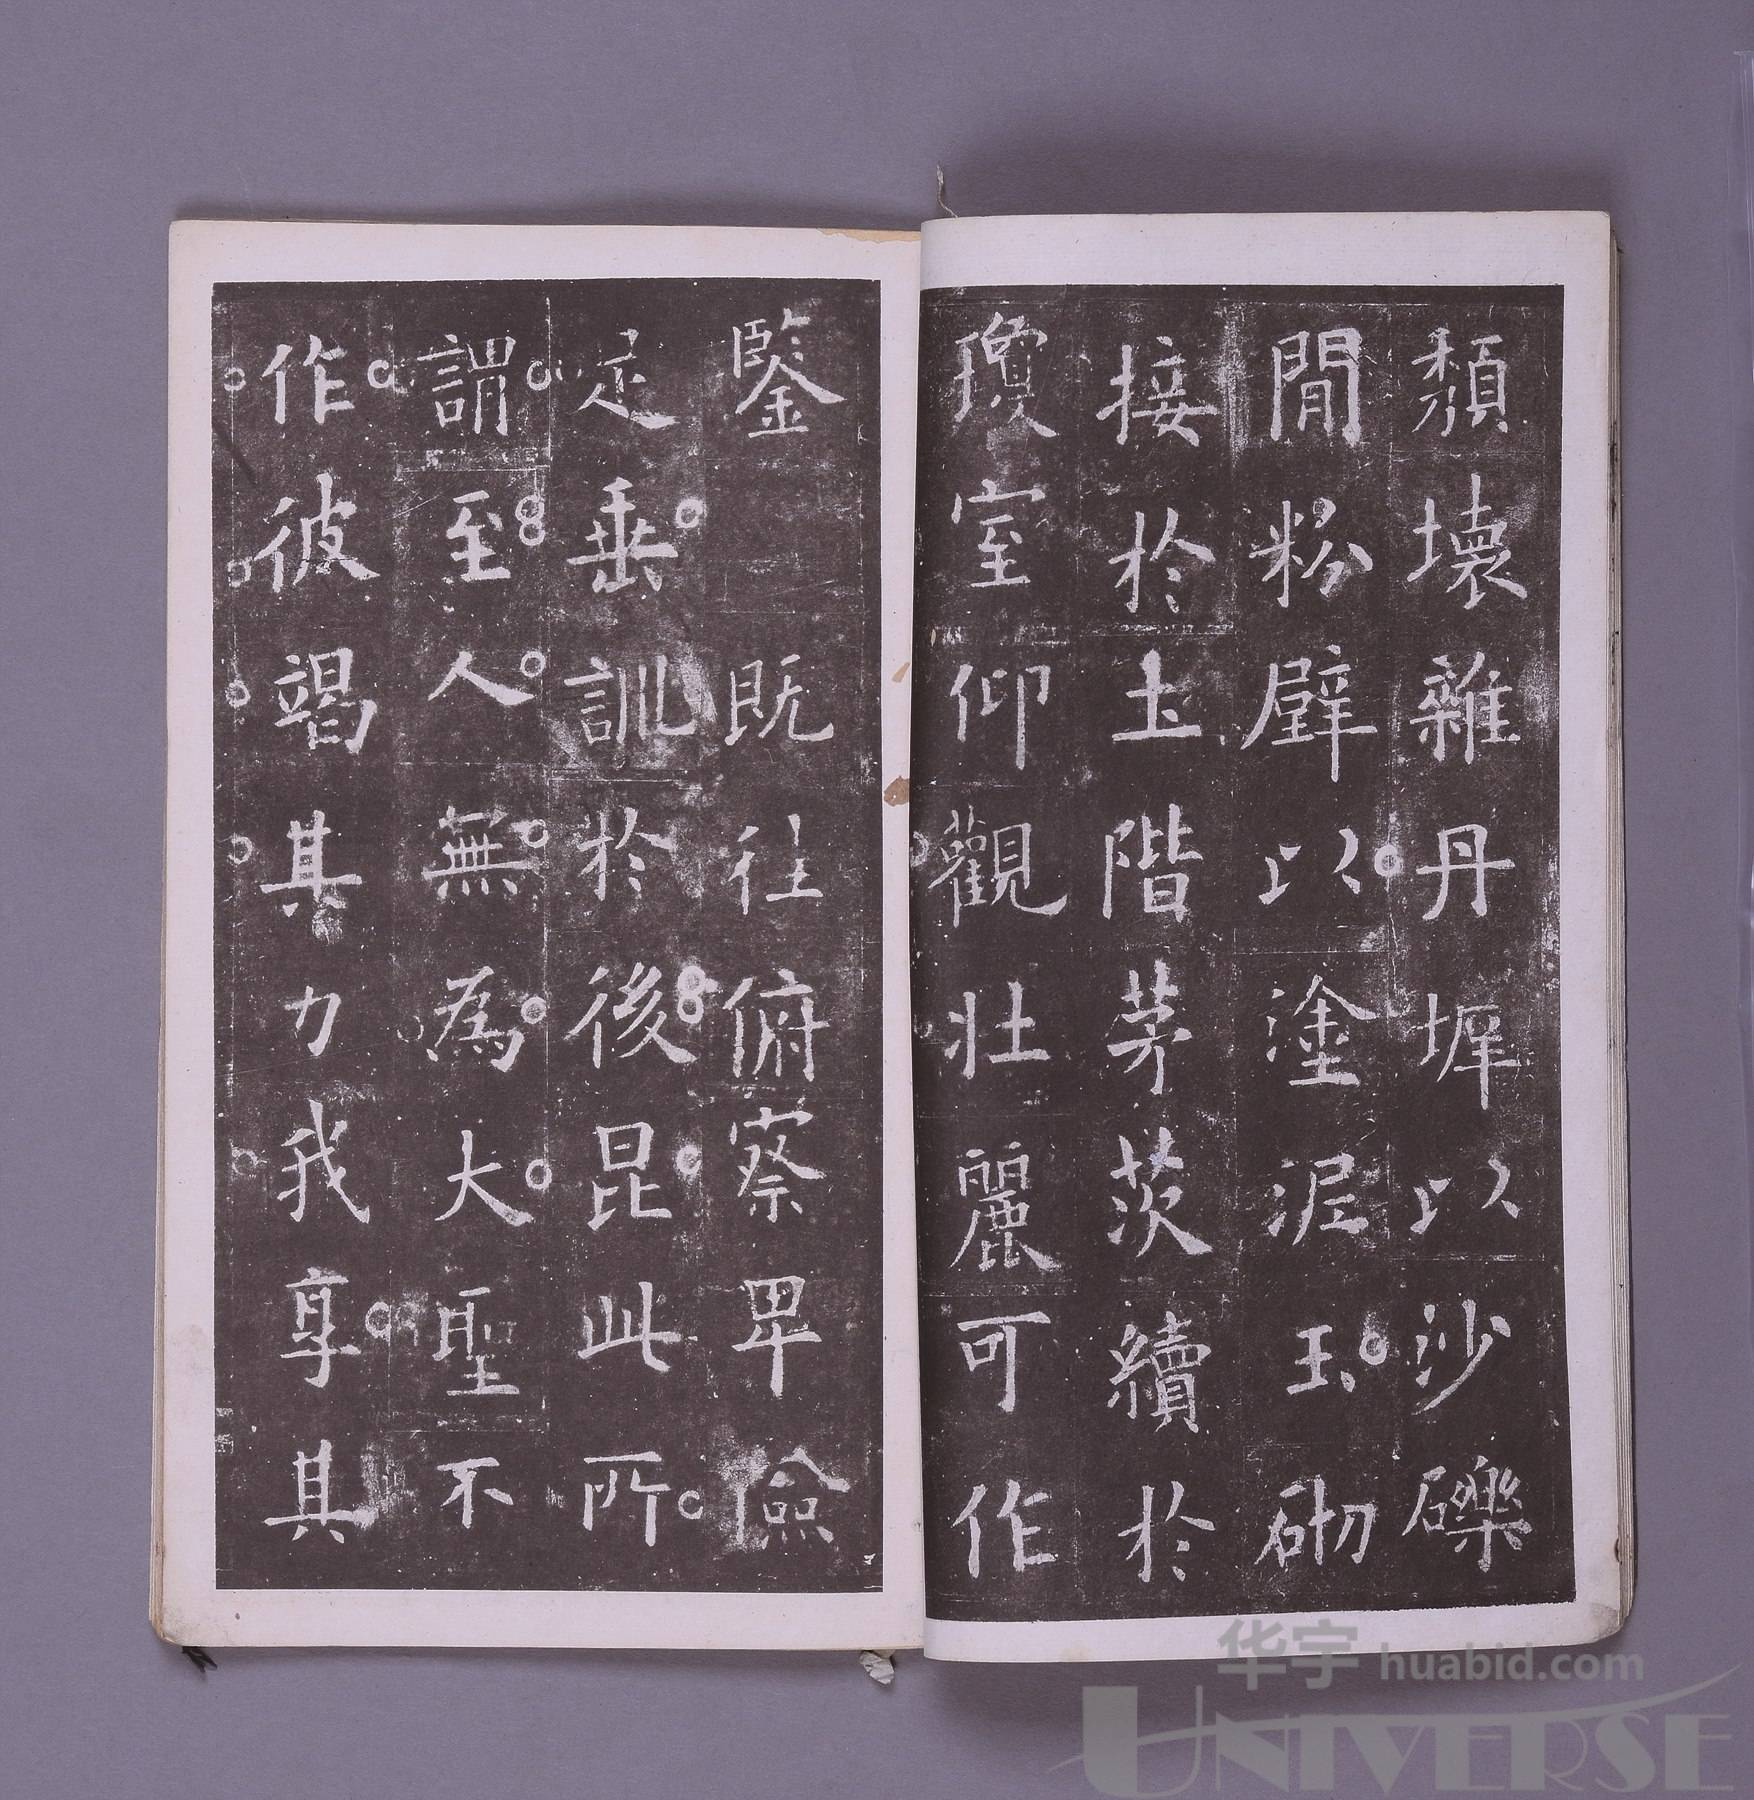 頽壞雜丹墀以沙礫
閒粉壁以塗泥玉砌
接於土階茅茨續於
瓊室仰觀壯麗可作
鑒既往俯察卑儉
足垂訓於後昆此所
謂至人無為大聖不
作彼竭其力我享其
华宇 huabid.com
UNIVERSE